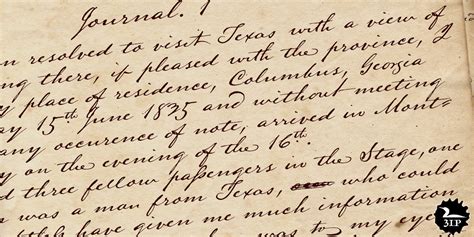 Journal. 1
n resolved to visit Texas with a view of
ing there, if pleased with the province, I
y place of residence, Columbus, Georgia
ay 15th June 1835 and without meeting
any occurence of note, arrived in Mont-
y on the evening of the 16th.
d three fellow passengers in the Stage, one
was a man from Texas, who could
btless have given me much information
was to my eye
3IP